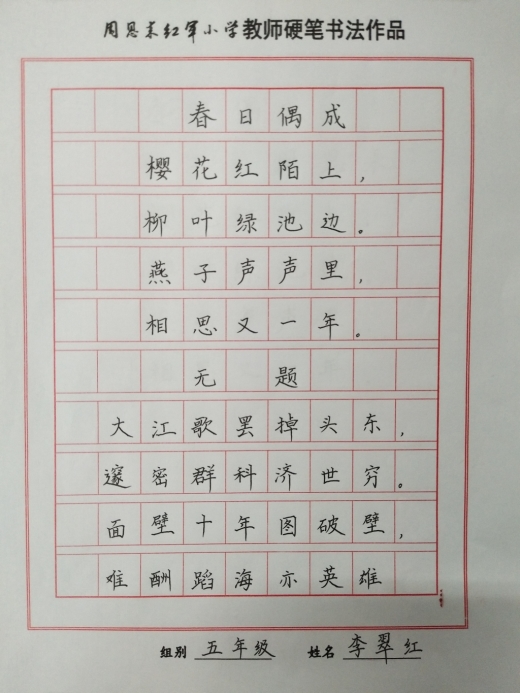 周恩来红军小学教师硬笔书法作品
春日偶成
樱花红陌上，
柳叶绿池边。
燕子声声里，
相思又一年。
无题
大江歌罢掉头东，
邃密群科济世穷。
面壁十年图破壁，
难酬蹈海亦英雄
组别 五年级 姓名 李翠红